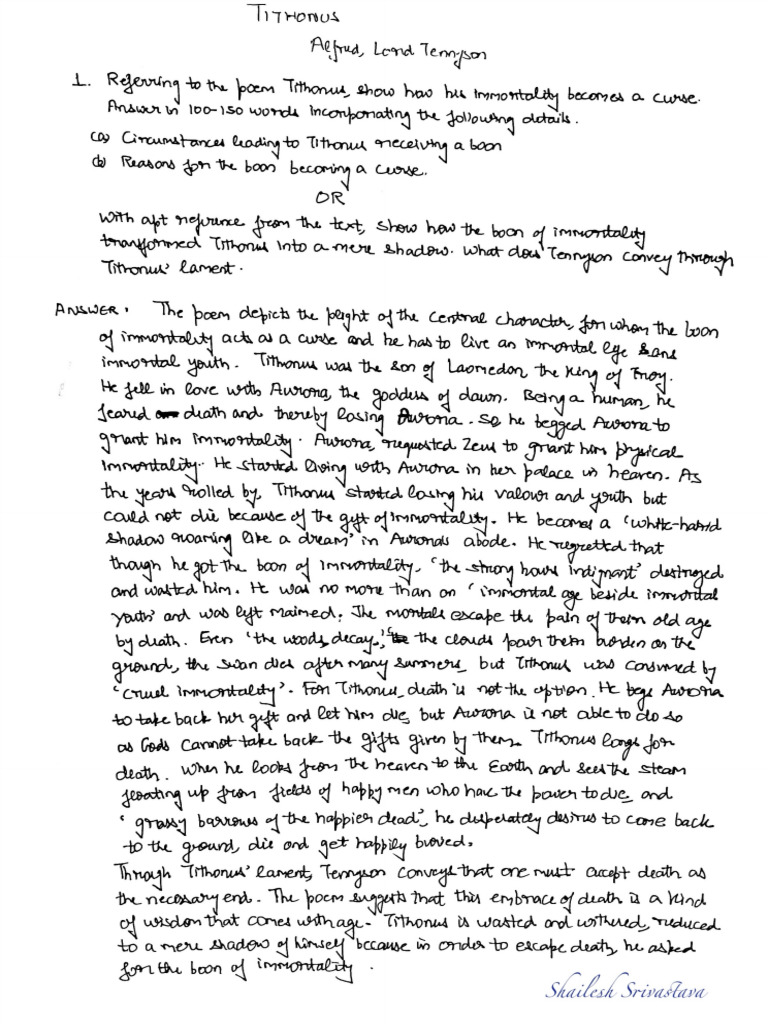 TITHONUS
Alfred, Lord Tennyson
1. Referring to the poem Tithonus, show how his immortality becomes a curse.
Answer in 100-150 words incorporating the following details.
(a) Circumstances leading to Tithonus receiving a boon
(b) Reasons for the boon becoming a curse.
OR
With apt reference from the text, show how the boon of immortality
transformed Tithonus into a mere shadow. What does Tennyson convey through
Tithonus' lament.
ANSWER: The poem depicts the plight of the central character, for whom the boon
of immortality acts as a curse and he has to live an immortal life sans
immortal youth. Tithonus was the son of Laomedon, the King of Troy.
He fell in love with Aurora, the goddess of dawn. Being a human, he
feared death and thereby losing Aurora. So, he begged Aurora to
grant him immortality. Aurora, requested Zeus to grant him physical
immortality. He started living with Aurora in her palace in heaven. As
the years rolled by, Tithonus started losing his valour and youth but
could not die because of the gift of immortality. He becomes a 'white-haired
shadow roaming like a dream' in Aurora's abode. He regretted that
though he got the boon of immortality, 'the strong hours indignant' destroyed
and wasted him. He was no more than an 'immortal age beside immortal
youth' and was left maimed. The mortals escape the pain of their old age
by death. Even 'the woods decay', the clouds pour their burden on the
ground, the swan dies after many summers, but Tithonus was consumed by
'cruel immortality'. For Tithonus, death is not the option. He begs Aurora
to take back her gift and let him die, but Aurora is not able to do so
as Gods cannot take back the gifts given by them. Tithonus longs for
death. When he looks from the heaven to the Earth and sees the steam
floating up from fields of happy men who have the power to die, and
'grassy barrows of the happier dead', he desperately desires to come back
to the ground, die and get happily buried.
Through Tithonus' lament, Tennyson conveys that one must accept death as
the necessary end. The poem suggests that this embrace of death is a kind
of wisdom that comes with age. Tithonus is wasted and withered, reduced
to a mere shadow of himself because in order to escape death, he asked
for the boon of immortality.
Shailesh Srivastava